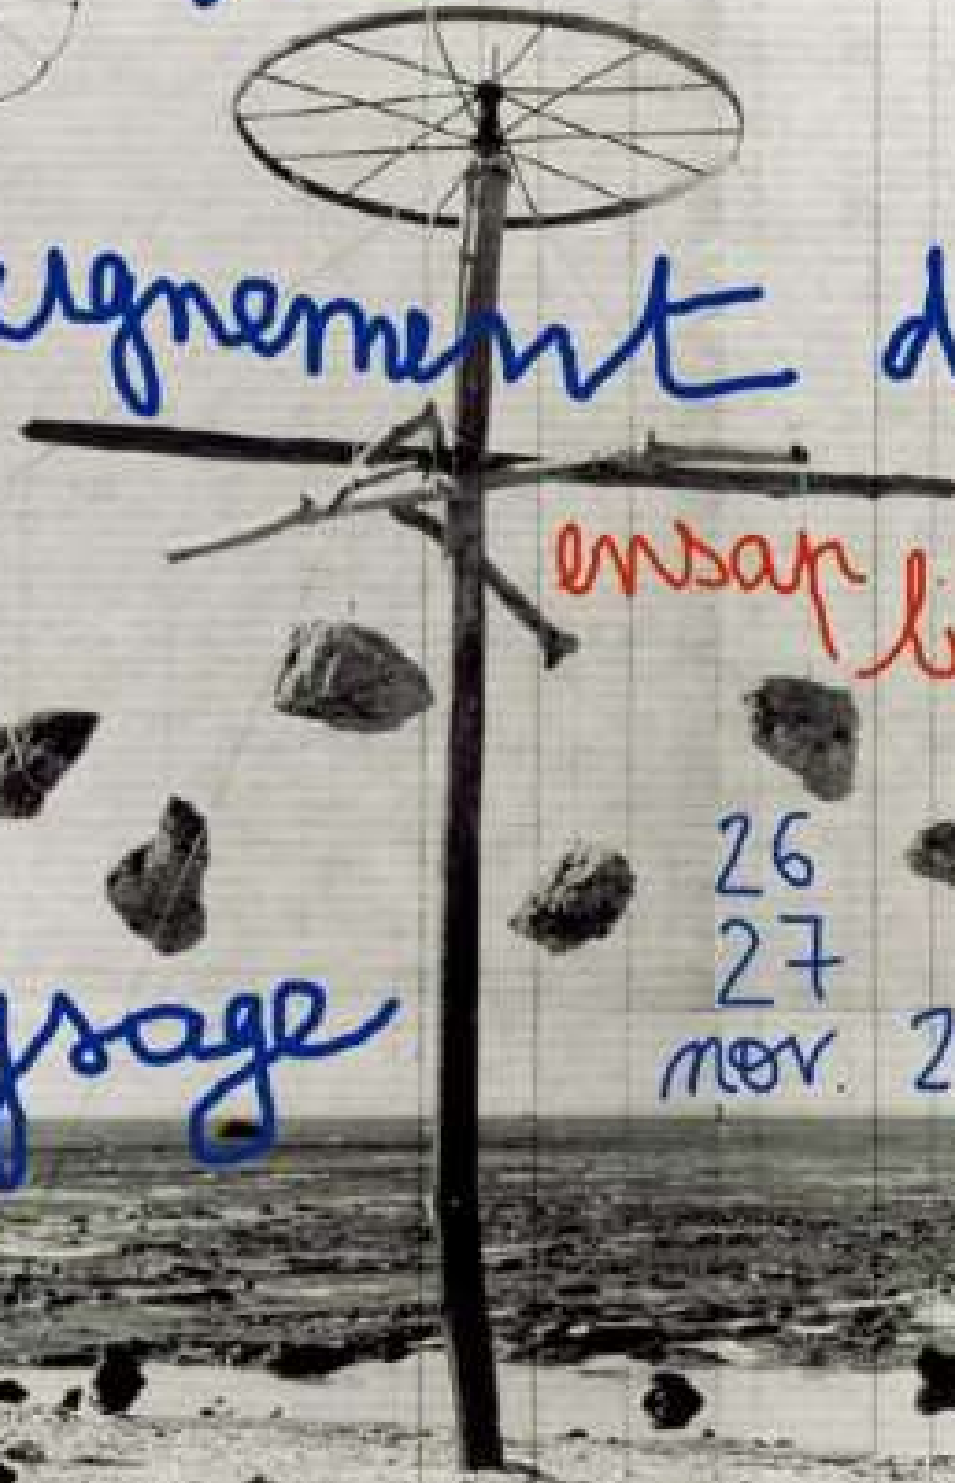 eignement d
ensap li
26
27
nov. 2
ysage